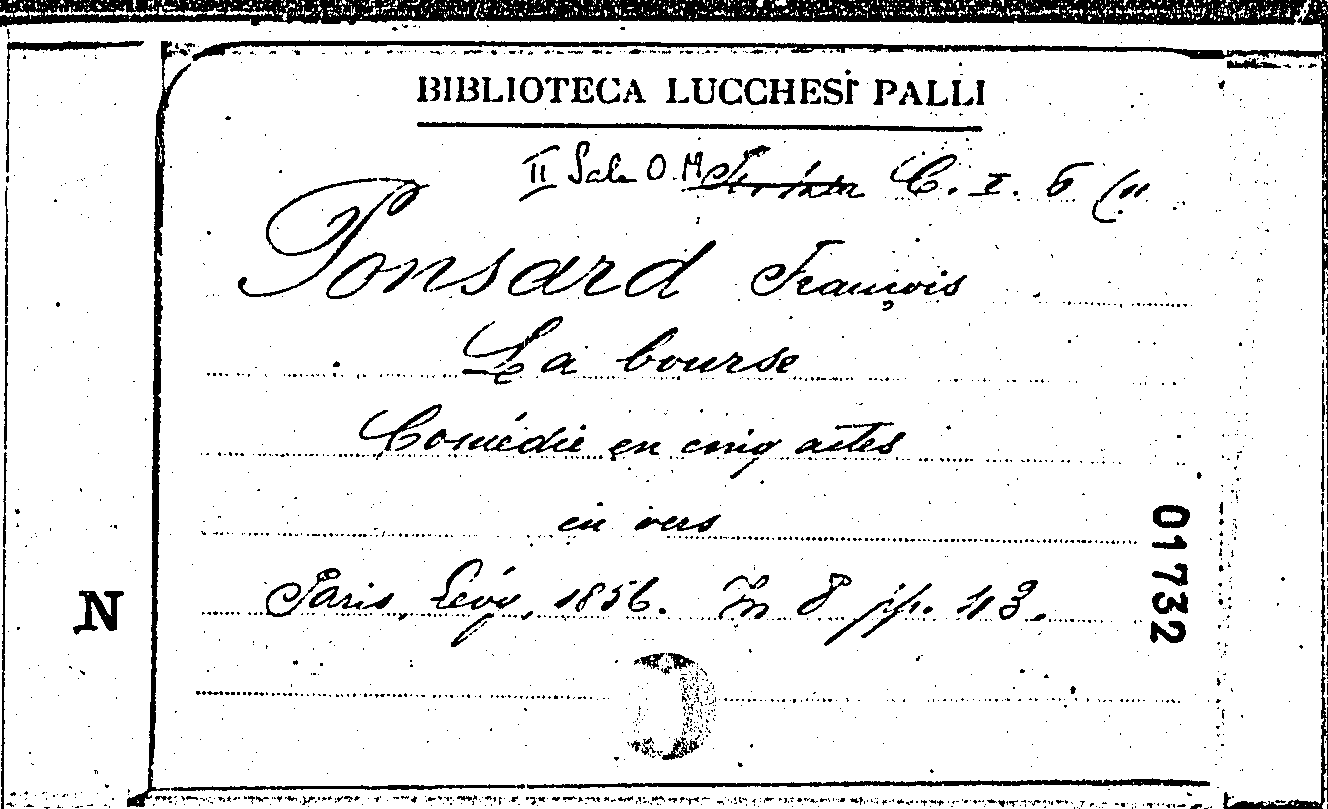 BIBLIOTECA LUCCHESI PALLI
II Sala O.M. C. I. 6 (11
Ponsard François
La bourse
Comédie en cinq actes
en vers
Paris, Lévy, 1856. In 8 pp. 43.
N
01732